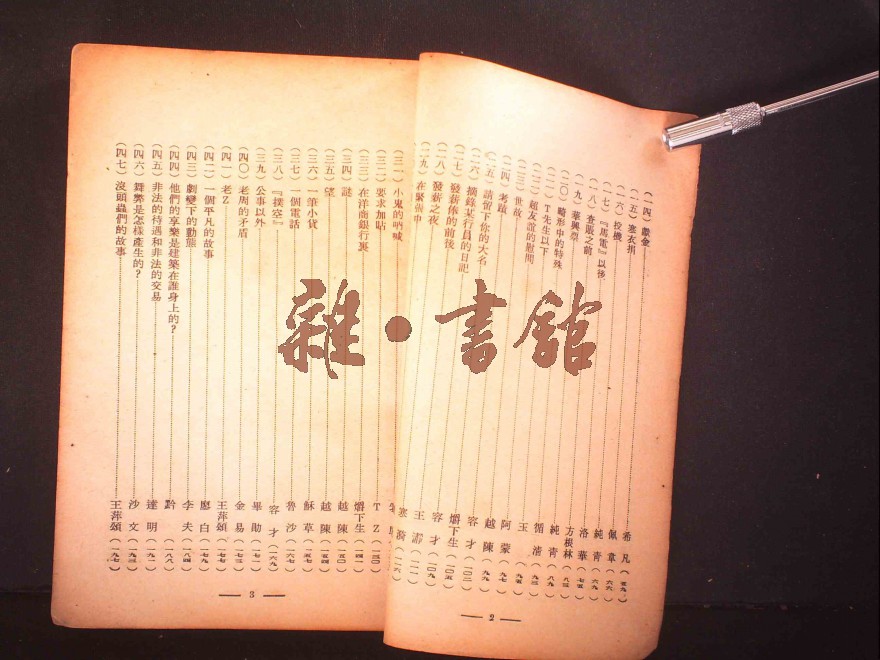 (一四)獻金 希凡(五九)
(一五)寒衣捐 佩韋(六六)
(一六)投機 純青(六九)
(一七)『馬電』以後 洛華(七五)
(一八)查賬之前 方根林(八三)
(一九)華興票 純青(八九)
(二〇)畸形中的特殊 循淸(九三)
(二一)T先生以下 王
(二二)超友誼的慰問 阿蒙(九七)
(二三)世故 越陳(九九)
(二四)考蹟 容才(一〇三)
(二五)請留下你的大名 嚼下生(一〇五)
(二六)摘錄某行員的日記 容才(一〇九)
(二七)發薪俸的前後 王
(二八)發薪之夜 寒漪(一一六)
(二九)在緊張中
— 2 —
(三一)小鬼的吶喊
(三二)要求加貼 T Z(一三〇)
(三三)在洋商銀行裏 嚼下生(一四一)
(三四)謎 越陳(一五〇)
(三五)望 越陳(一五四)
(三六)一筆小貨 穌草(一五七)
(三七)一個電話 魯沙(一六七)
(三八)『撲空』 容才(一六九)
(三九)公事以外 畢助(一七一)
(四〇)老周的矛盾 金易(一七三)
(四一)老Z 王萍頌(一七七)
(四二)一個平凡的故事 廖白(一七九)
(四三)劇變下的動態 李夫(一八四)
(四四)他們的享樂是建築在誰身上的? 黔(一八八)
(四五)非法的待遇和非法的交易 達明(一九一)
(四六)舞弊是怎樣產生的? 沙文(一九三)
(四七)沒頭蟲們的故事 王萍頌(一九七)
— 3 —
雜·書館